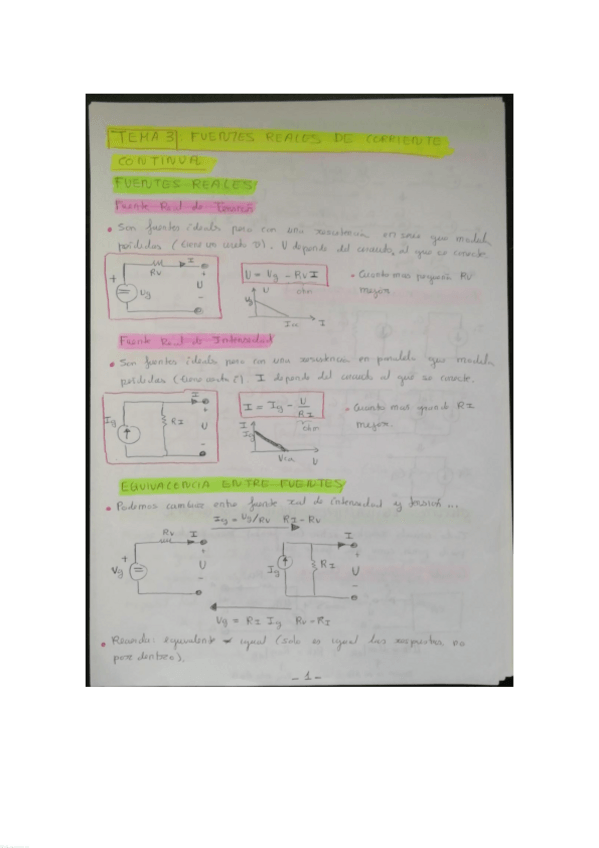 TEMA 3 FUENTES REALES DE CORRIENTE
CONTINUA
FUENTES REALES
Fuente Real de Tensión
• Son fuentes ideales pero con una resistencia en serie que modela
pérdidas (tiene un cierto). U depende del circuito al que se conecte.
+ Rv I + Ug U -
U = Ug - RvI
ohm
U Ug Icc I
• Cuanto mas pequeña RV
mejor.
Fuente Real de Intensidad
• Son fuentes ideales pero con una resistencia en paralelo que modela
pérdidas (tiene). I depende del circuito al que se conecte.
Ig RI I + U -
I = Ig - U/RI
ohm
I Ig U
• Cuanto mas grande RI
mejor.
EQUIVALENCIA ENTRE FUENTES
• Podemos cambiar entre fuente real de intensidad y tensión...
Ig = Ug/RV RI = RV
+ Vg Rv I + U -
Ig RI I + U -
Vg = RI Ig Rv = RI
• Recuerda: equivalente ≠ igual (solo es igual las respuestas no
por dentro).
- 1 -